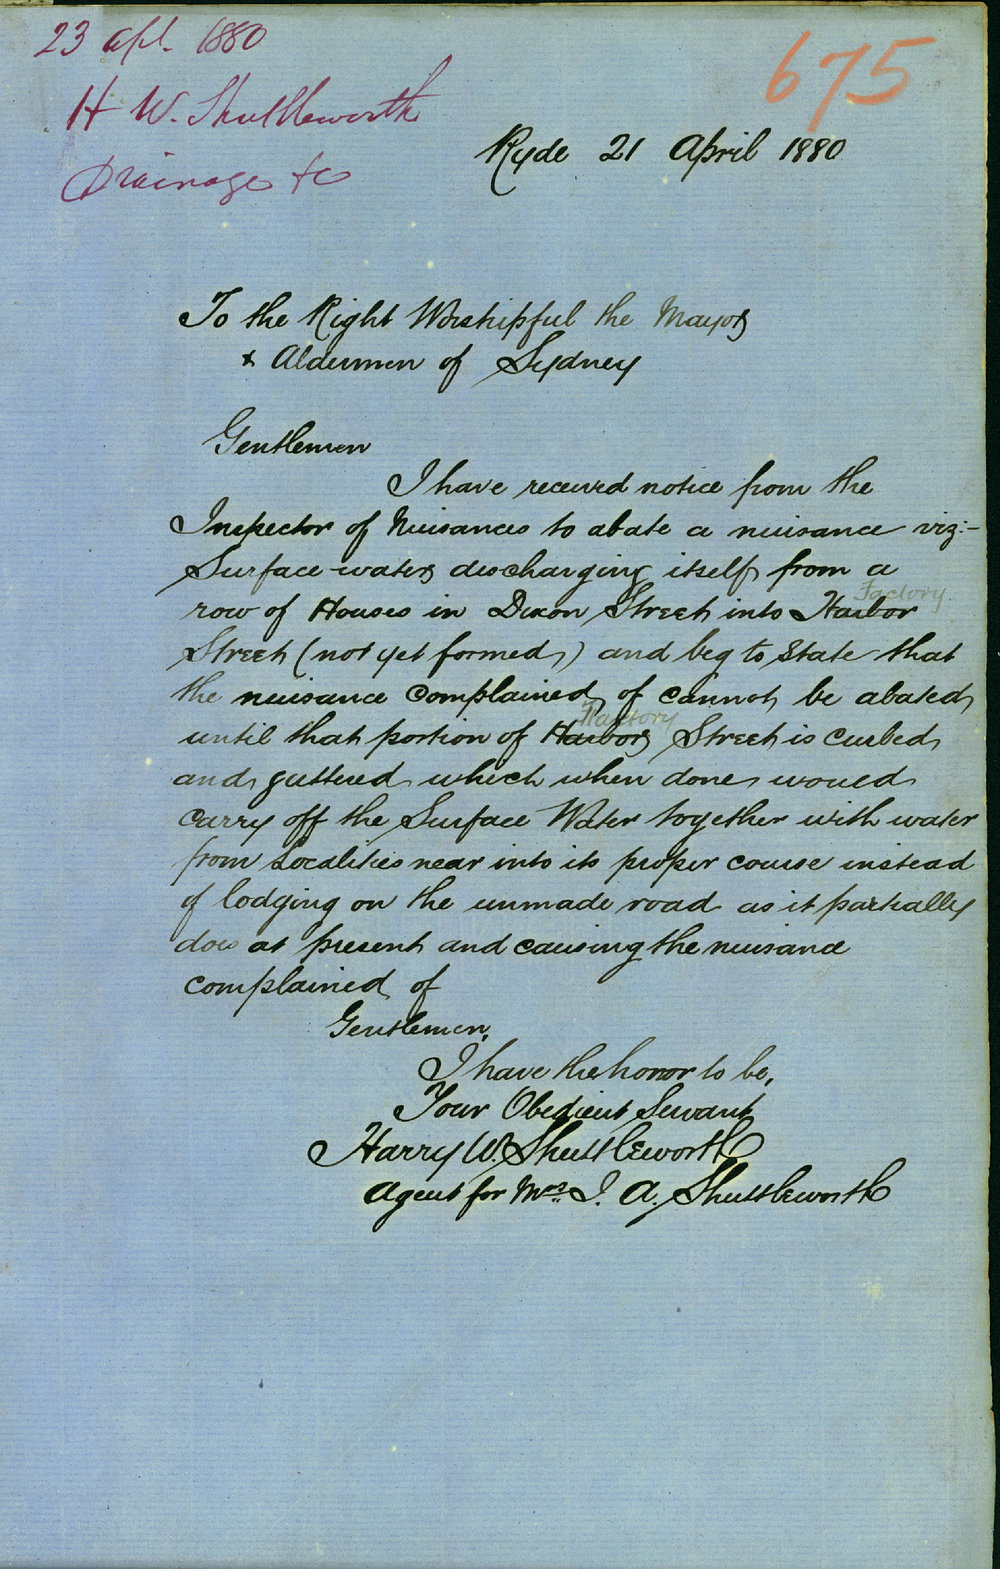 23 Apl. 1880
675
H W. Shuttleworth
Drainage &c
Ryde 21 April 1880
To the Right Worshipful the Mayor
& Aldermen of Sydney
Gentlemen
I have received notice from the
Inspector of Nuisances to abate a nuisance viz:-
Surface water discharging itself from a
Factory
row of Houses in Dixon Street into Harbor
Street (not yet formed) and beg to state that
the nuisance complained of cannot be abated
Factory
until that portion of Harbor Street is curbed
and guttered which when done would
carry off the Surface Water together with water
from Localities near into its proper course instead
of lodging on the unmade road as it partially
does at present and causing the nuisance
complained of
Gentlemen,
I have the honor to be,
Your Obedient Servant
Harry W. Shuttleworth
Agent for Mrs. J. A. Shuttleworth